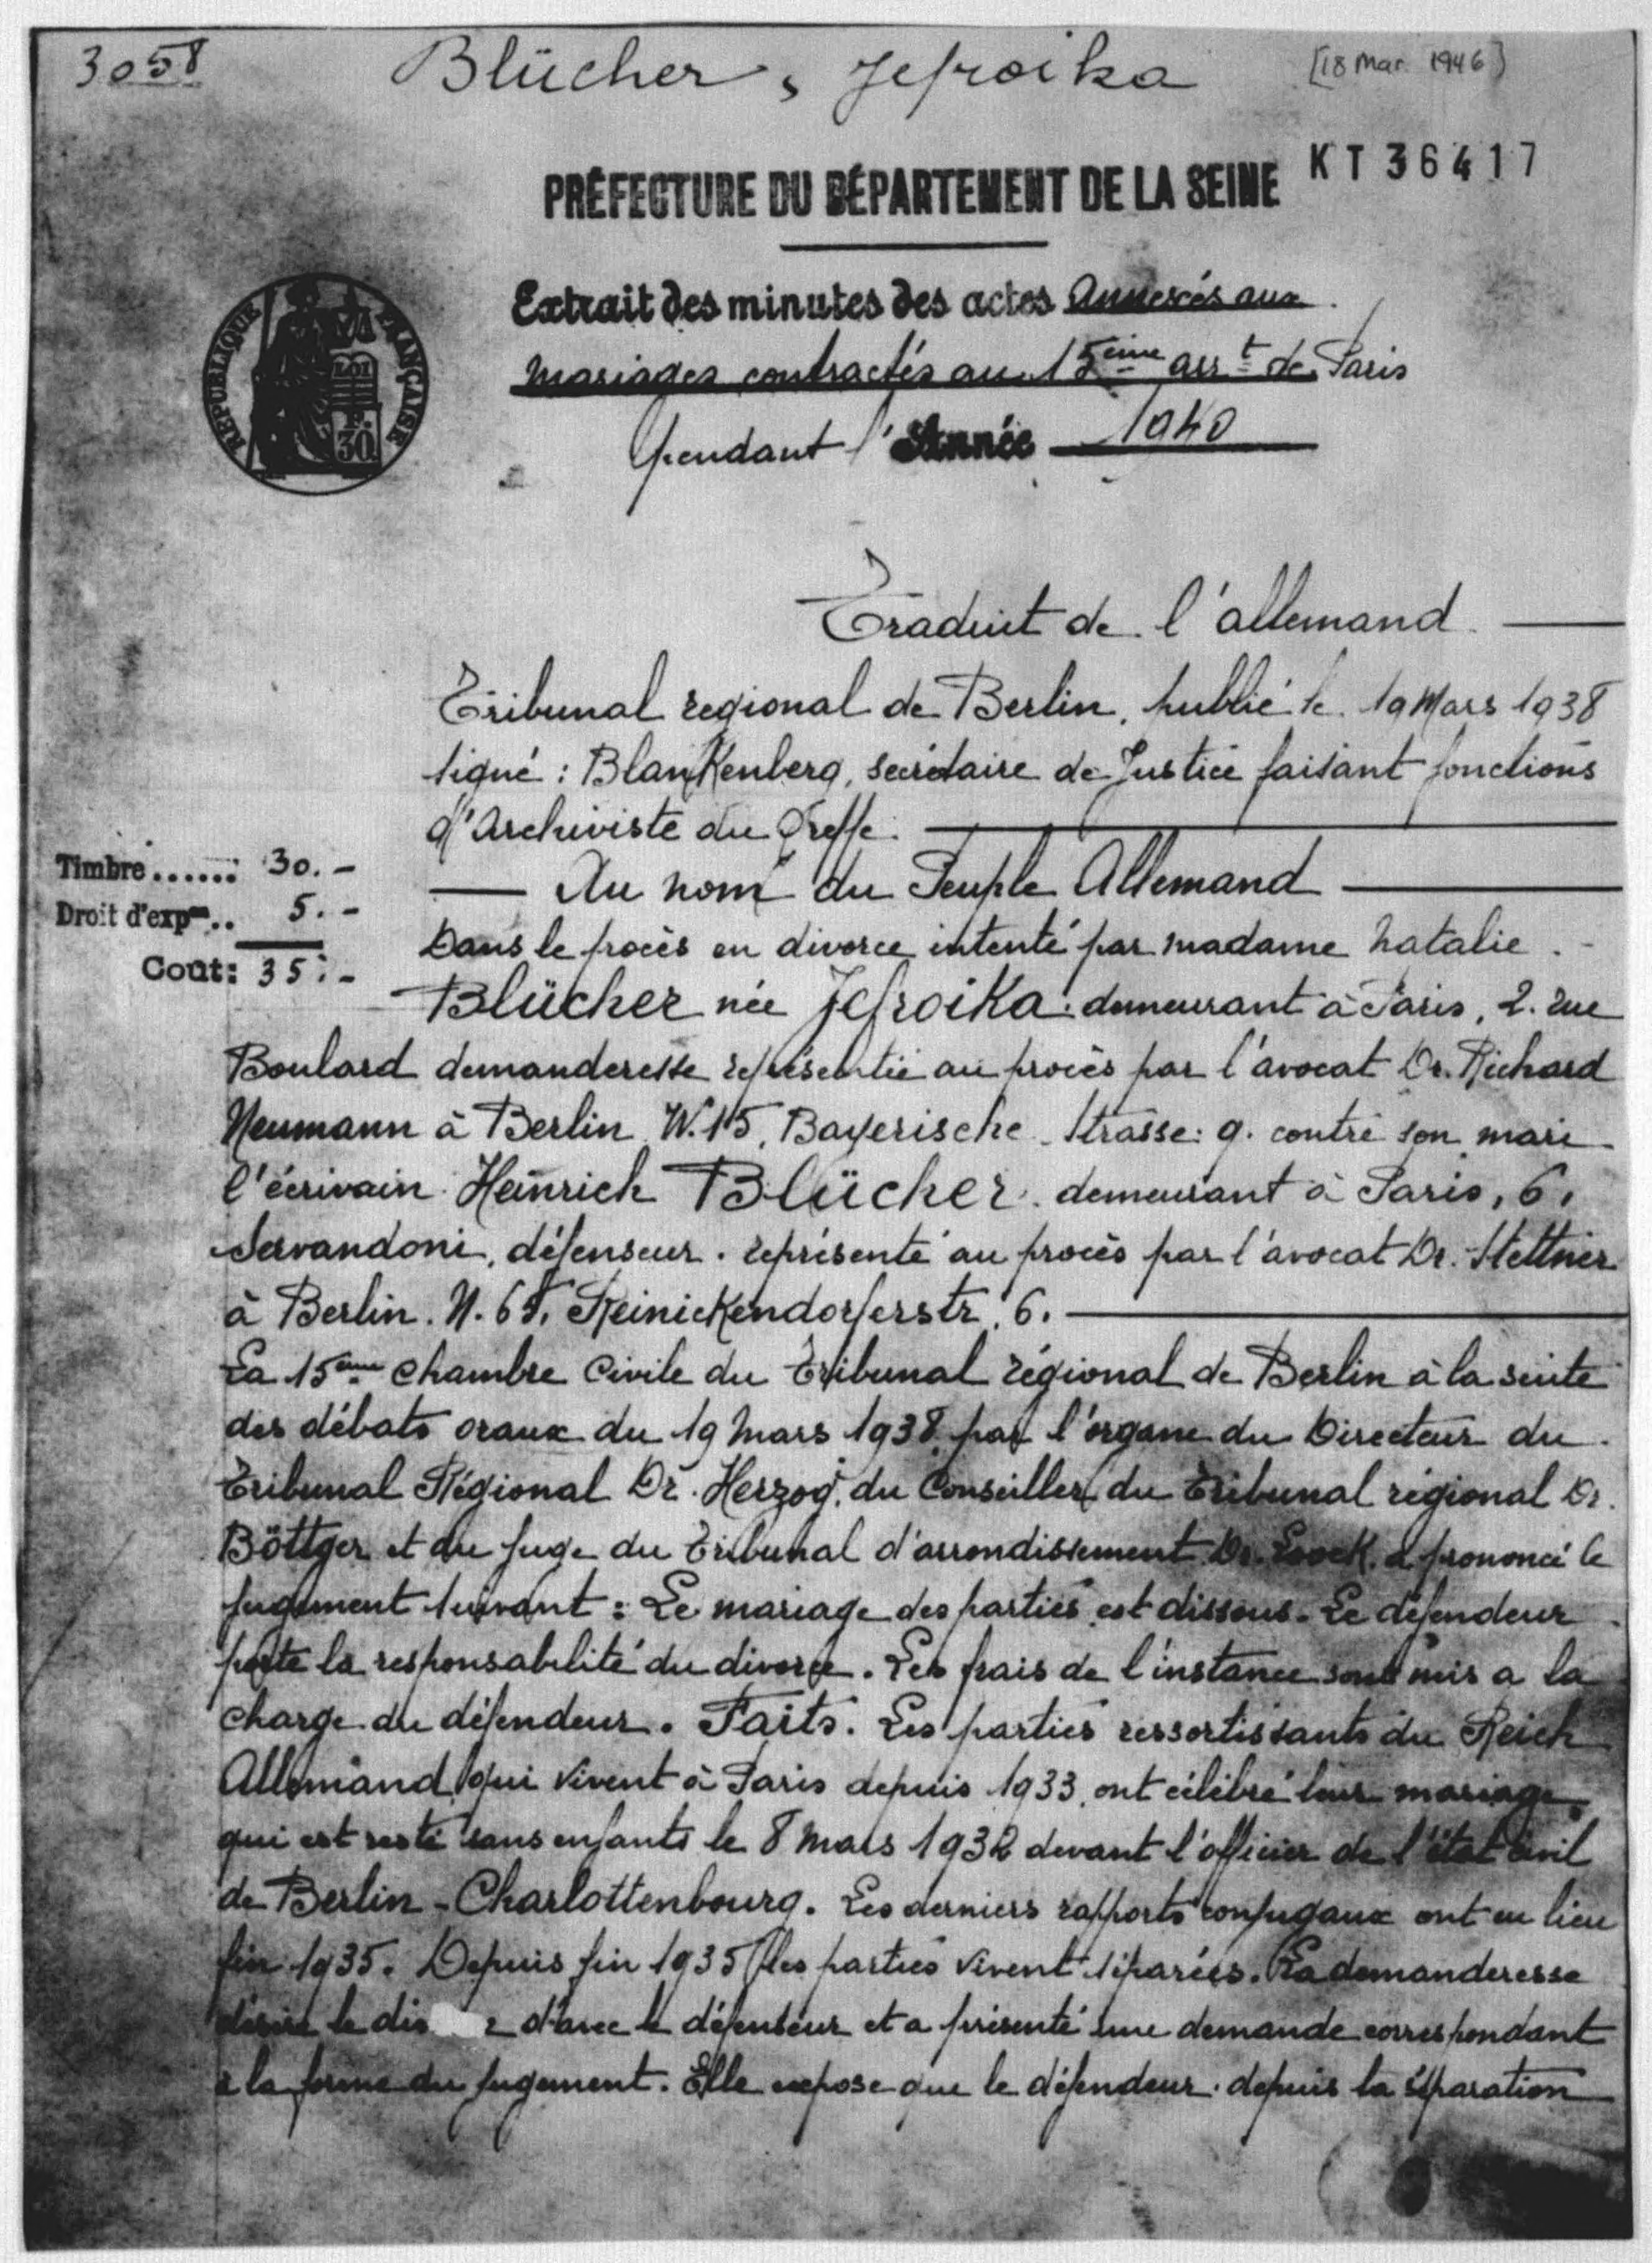 3058
Blücher, Jefroika
[18 Mar. 1946]
KT 36417
PRÉFECTURE DU DÉPARTEMENT DE LA SEINE
RÉPUBLIQUE FRANÇAISE
LOI
F.
30
Extrait des minutes des actes Annexés aux
Mariages contractés au 15ème arrt de Paris
pendant l'Année 1940
Traduit de l'allemand
Tribunal regional de Berlin, publié le 19 Mars 1938
signé : Blankenberg, secrétaire de Justice faisant fonctions
d'Archiviste du Greffe.
Timbre...... 30.-
Droit d'expon.. 5.-
Coût: 35.-
Au nom du Peuple Allemand
Dans le procès en divorce intenté par madame Natalie
Blücher née Jefroika. demeurant à Paris, 2. rue
Boulard demanderesse représentée au procès par l'avocat Dr. Richard
Neumann à Berlin W.15, Bayerische Strasse: 9. contre son mari
l'écrivain Heinrich Blücher. demeurant à Paris, 6,
Servandoni, défenseur. représenté au procès par l'avocat Dr. Stettner
à Berlin. N. 65, Reinickendorferstr. 6.
La 15ème Chambre Civile du Tribunal régional de Berlin à la suite
des débats oraux du 19 Mars 1938, par l'organe du Directeur du
Tribunal Régional Dr. Herzog, du Conseiller du Tribunal régional Dr.
Böttger et du Juge du Tribunal d'arrondissement Dr. a prononcé le
jugement suivant : Le mariage des parties est dissous. Le défendeur
porte la responsabilité du divorce. Les frais de l'instance sont mis a la
charge du défendeur. Faits. Les parties ressortissants du Reich
Allemand qui vivent à Paris depuis 1933, ont célébré leur mariage,
qui est resté sans enfants le 8 Mars 1932 devant l'officier de l'état civil
de Berlin-Charlottenbourg. Les derniers rapports conjugaux ont eu lieu
fin 1935. Depuis fin 1935 les parties vivent séparées. La demanderesse
désire le div e d'avec le défenseur et a présenté une demande correspondant
à la forme du jugement. Elle expose que le défendeur. depuis la séparation